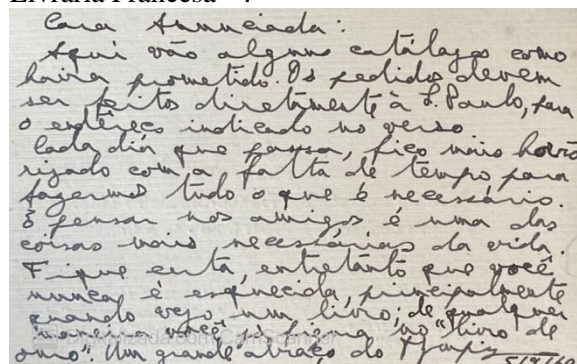 Livraria Francesa
Cara Anunciada:
Aqui vão alguns catálogos como
havia prometido. Os pedidos devem
ser feitos diretamente à S. Paulo, para
o endêreço indicado no verso
Cada dia que passa, fico mais horro
rizado com a falta de tempo para
fazermos tudo o que é necessário.
E pensar nos amigos é uma das
coisas mais necessárias da vida.
Fique certa, entretanto que você
nunca é esquecida, principalmente
quando vejo um livro; de qualquer
maneira você já figura no "livro de
ouro". Um grande abraço do
Digitalizada com CamScanner